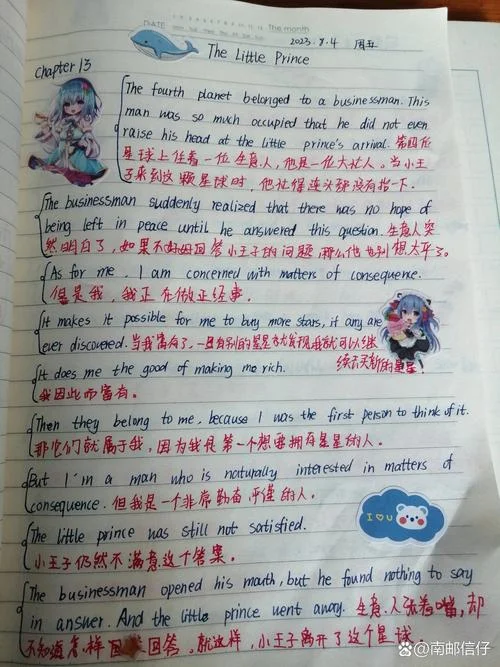 DATE
The month
2023.8.4 周五
The Little Prince
Chapter 13
The fourth planet belonged to a businessman. This
man was so much occupied that he did not even
raise his head at the little prince's arrival. 第四颗
星球上住着一位生意人，他是一位大忙人。当小王
子来到这颗星球时，他忙得连头都没有抬一下。
The businessman suddenly realized that there was no hope of
being left in peace until he answered this question. 生意人突
然明白了，如果不好好回答小王子的问题，那么他也别想太平了。
As for me, I am concerned with matters of consequence.
但是我，我正在做正经事。
It makes it possible for me to buy more stars, if any are
ever discovered. 当我富有了，一旦有别的星星被发现我就可以继
续去买新的星星！
It does me the good of making me rich.
我因此而富有。
Then they belong to me, because I was the first person to think of it.
那它们就属于我，因为我是第一个想要拥有星星的人。
But I'm a man who is naturally interested in matters of
consequence. 但我是一个非常勤奋严谨的人。
I ♡ U
The little prince was still not satisfied.
小王子仍然不满意这个答案。
The businessman opened his mouth, but he found nothing to say
in answer. And the little prince went away. 生意人张着嘴，却
不知道怎样回答。就这样，小王子离开了这个星球。
@南邮信仔